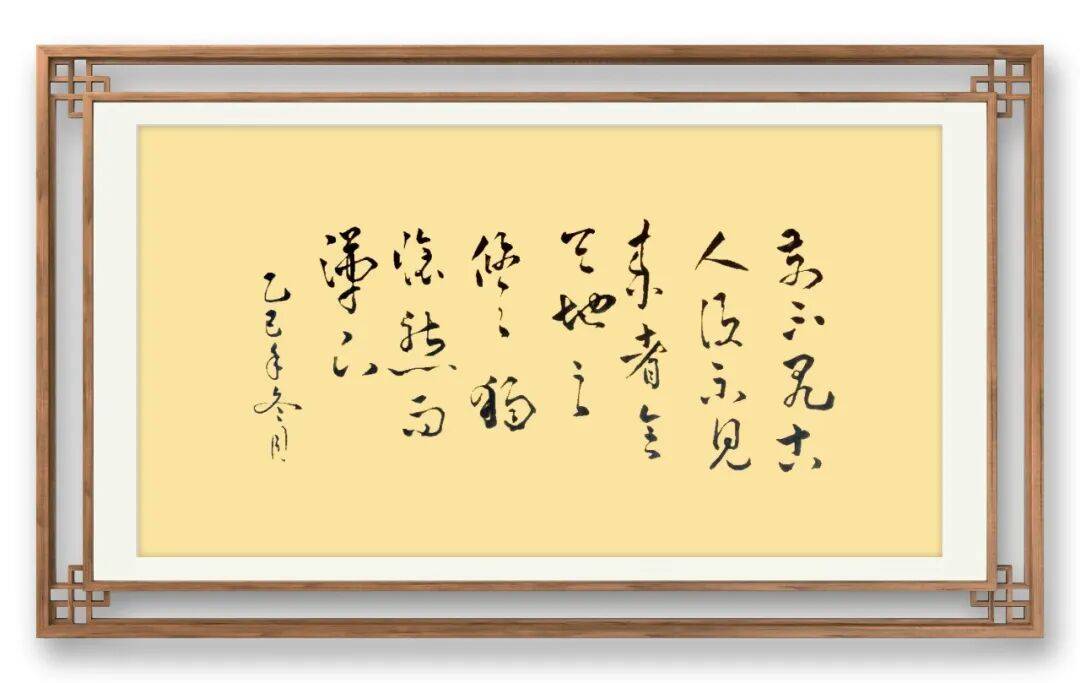 前不見古
人後不見
来者念
天地之
悠々獨
愴然而
涕下
乙巳年冬月